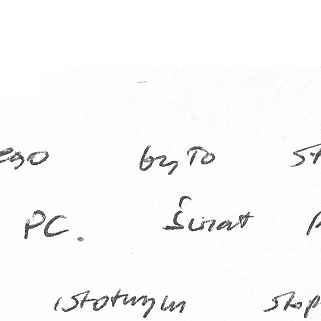 ego było st
PC. Świat p
istotnym stop